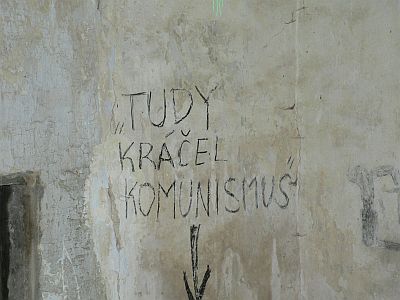 „TUDY
KRÁČEL
KOMUNISMUS“